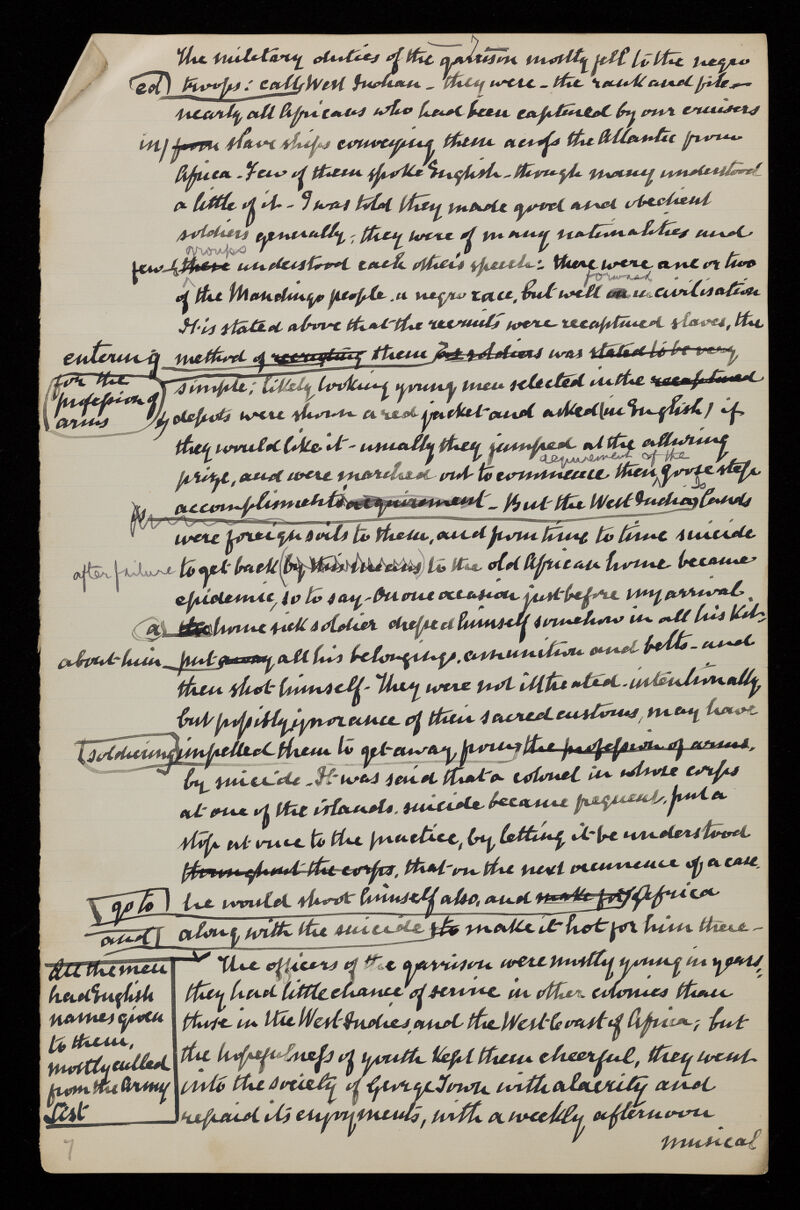 The military duties of the garrison mostly fell to the negro
ed) troops: call West Indian - they were - the rank and file -
nearly all Africans who had been captured by our cruisers
in/ from slave ships conveying them across the Atlantic from
Africa - Few of them spoke English - though many understood
a little of it - I was told they made good and obedient
soldiers generally; they were of many nationalities and
groups
few of these understood each other's speech: there were one or two
forward
of the Mandingo people, a negro race, but well on in civilisation
It is stated above that the recruits were recaptured slaves, the
entering method of recruiting them as soldiers was stated to be very
for the profession of arms
simple; likely looking young men selected in the recaptured
depots were shown a red jacket and asked (in English) if
they would like it - usually they jumped at the alluring
acquirement of the
prize, and were marched out to commence their goose step
accomplishments acquirement - But the West India Islands
were foreign soils to them, and from time to time suicide
after failure to get back (by this means) to the old African home became
epidemic, so to say - On one occasion just before my arrival
a the home sick soldier dressed himself somehow in all his kit -
about him put away all his belongings, amunition and belts - and
then shot himself - They were not illtreated - intentionally,
but possibly ignorance of their sacred customs, may have
soldiering impelled them to get away from the profession of arms,
by suicide - It was said that a colonel in whose corps
at one of the islands, suicide became frequent, put a
stop at once to the practice, by letting it be understood
throughout the corps, that on the next occurrence of a case
go to he would shoot himself also, and make for Africa
and along with the suicide to make it hot for him there -
The officers of the garrison were mostly young in years,
they had little chance of service in other colonies than
those in the West Indies, and the West Coast of Africa; but
the hopefulness of youth kept them cheerful, they went
into the society of George Town with alacrity and
repaid its enjoyments, with a weekly afternoon
musical
All the men
had English
names given
to them,
mostly culled
from the Army
List
7